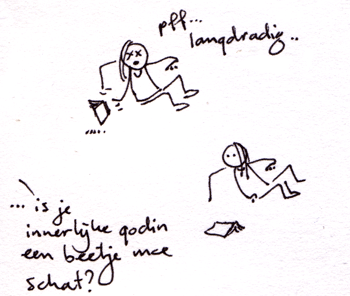 pff...
langdradig..
... is je
innerlijke godin
een beetje moe
schat?